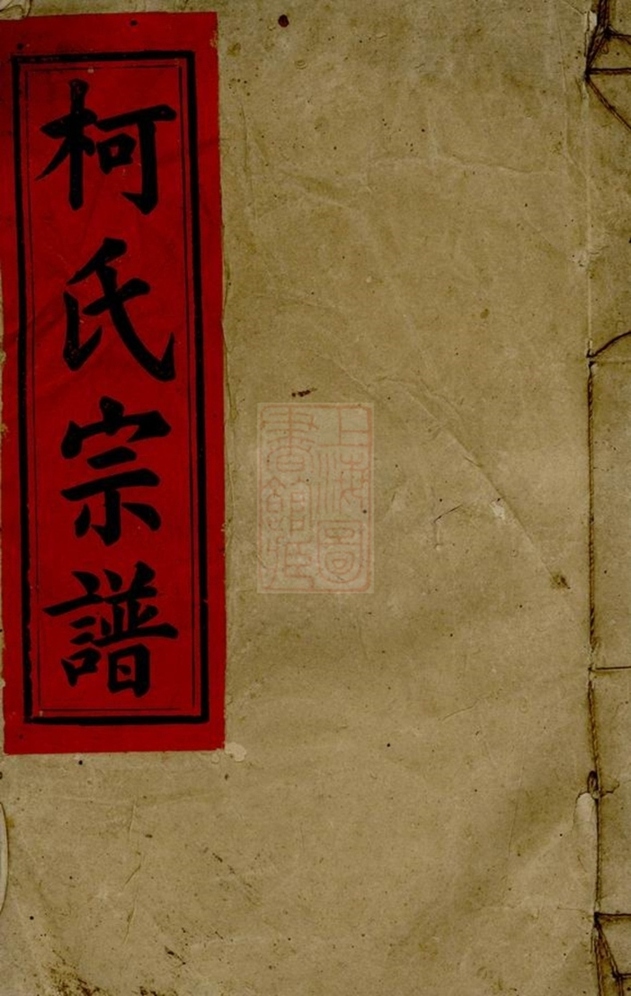 柯氏宗譜
上海圖
書館藏